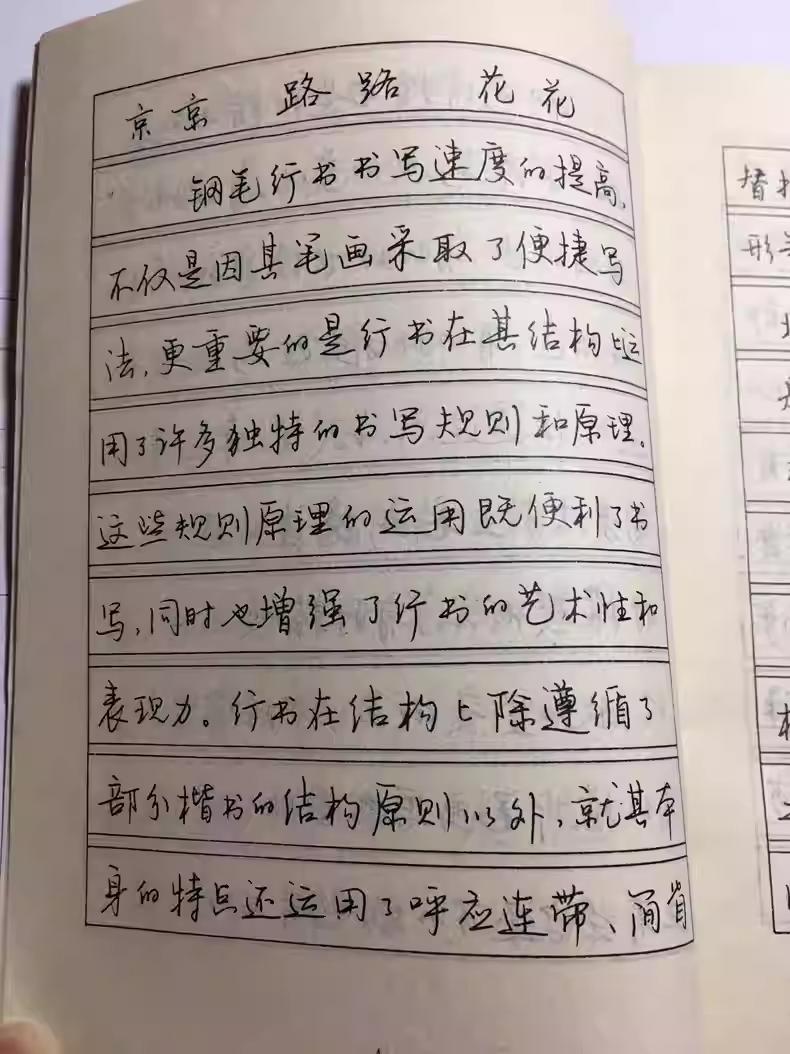 京京 路路 花花
钢毛行书书写速度的提高,
不仅是因其笔画采取了便捷写
法,更重要的是行书在其结构上运
用了许多独特的书写规则和原理。
这些规则原理的运用既便利了书
写,同时也增强了行书的艺术性和
表现力。行书在结构上除遵循了
部分楷书的结构原则以外,就其本
身的特点还运用了呼应连带、简省
替
形